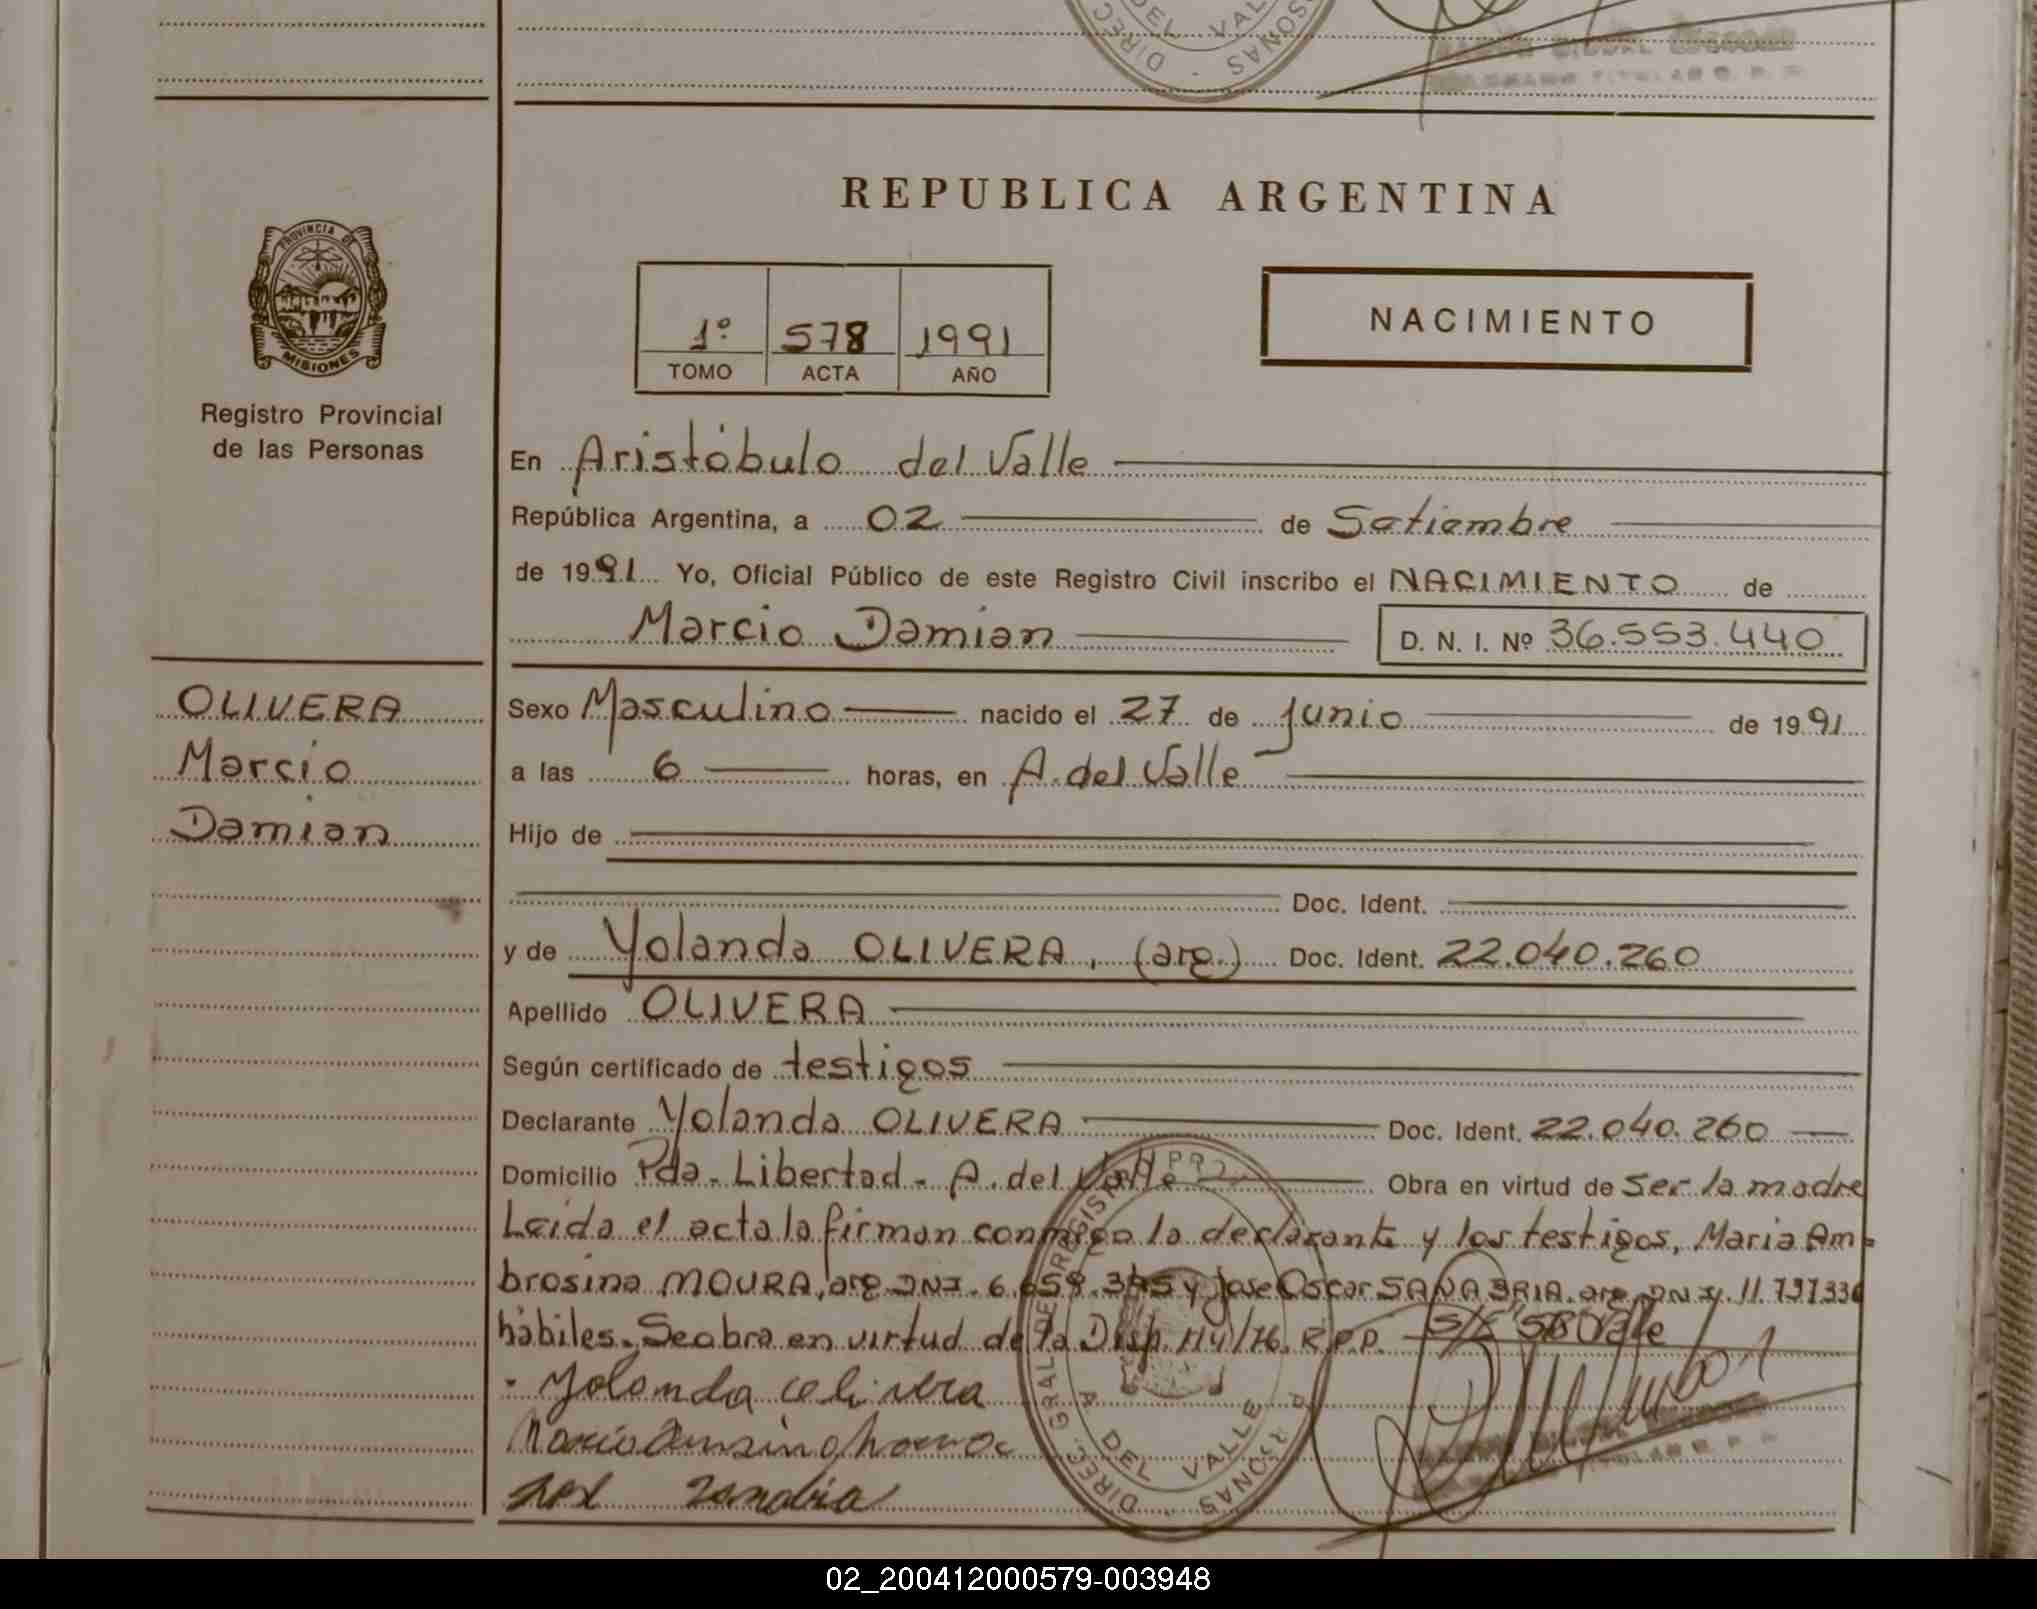 DIREC
DEL VAL
SONAS
REPUBLICA ARGENTINA
PROVINCIA DE
MISIONES
Registro Provincial
de las Personas
1º 578 1991
TOMO ACTA AÑO
NACIMIENTO
En Aristóbulo del Valle
República Argentina, a 02 de Setiembre
de 1991 Yo, Oficial Público de este Registro Civil inscribo el NACIMIENTO de
Marcio Damian D. N. I. Nº 36.553.440
OLIVERA
Marcio
Damian
Sexo Masculino nacido el 27 de junio de 1991
a las 6 horas, en A. del Valle
Hijo de
Doc. Ident.
y de Yolanda OLIVERA, (arg.) Doc. Ident. 22.040.260
Apellido OLIVERA
Según certificado de testigos
Declarante Yolanda OLIVERA Doc. Ident. 22.040.260
Domicilio Pda. Libertad - A. del Valle Obra en virtud de Ser la madre
Leida el acta la firman conmigo la declarante y los testigos, Maria Am-
brosina MOURA, arg. DNI. 6.659.345 y Jose Oscar SANABRIA, arg. DNI. 11.737.336
hábiles. Se obra en virtud de la Disp. 114/76. R.P.P. S/E 578 Vale
Yolanda olivera
DIREC. GRAL. DE REGIST
A. DEL VALLE
SONAS
02_200412000579-003948